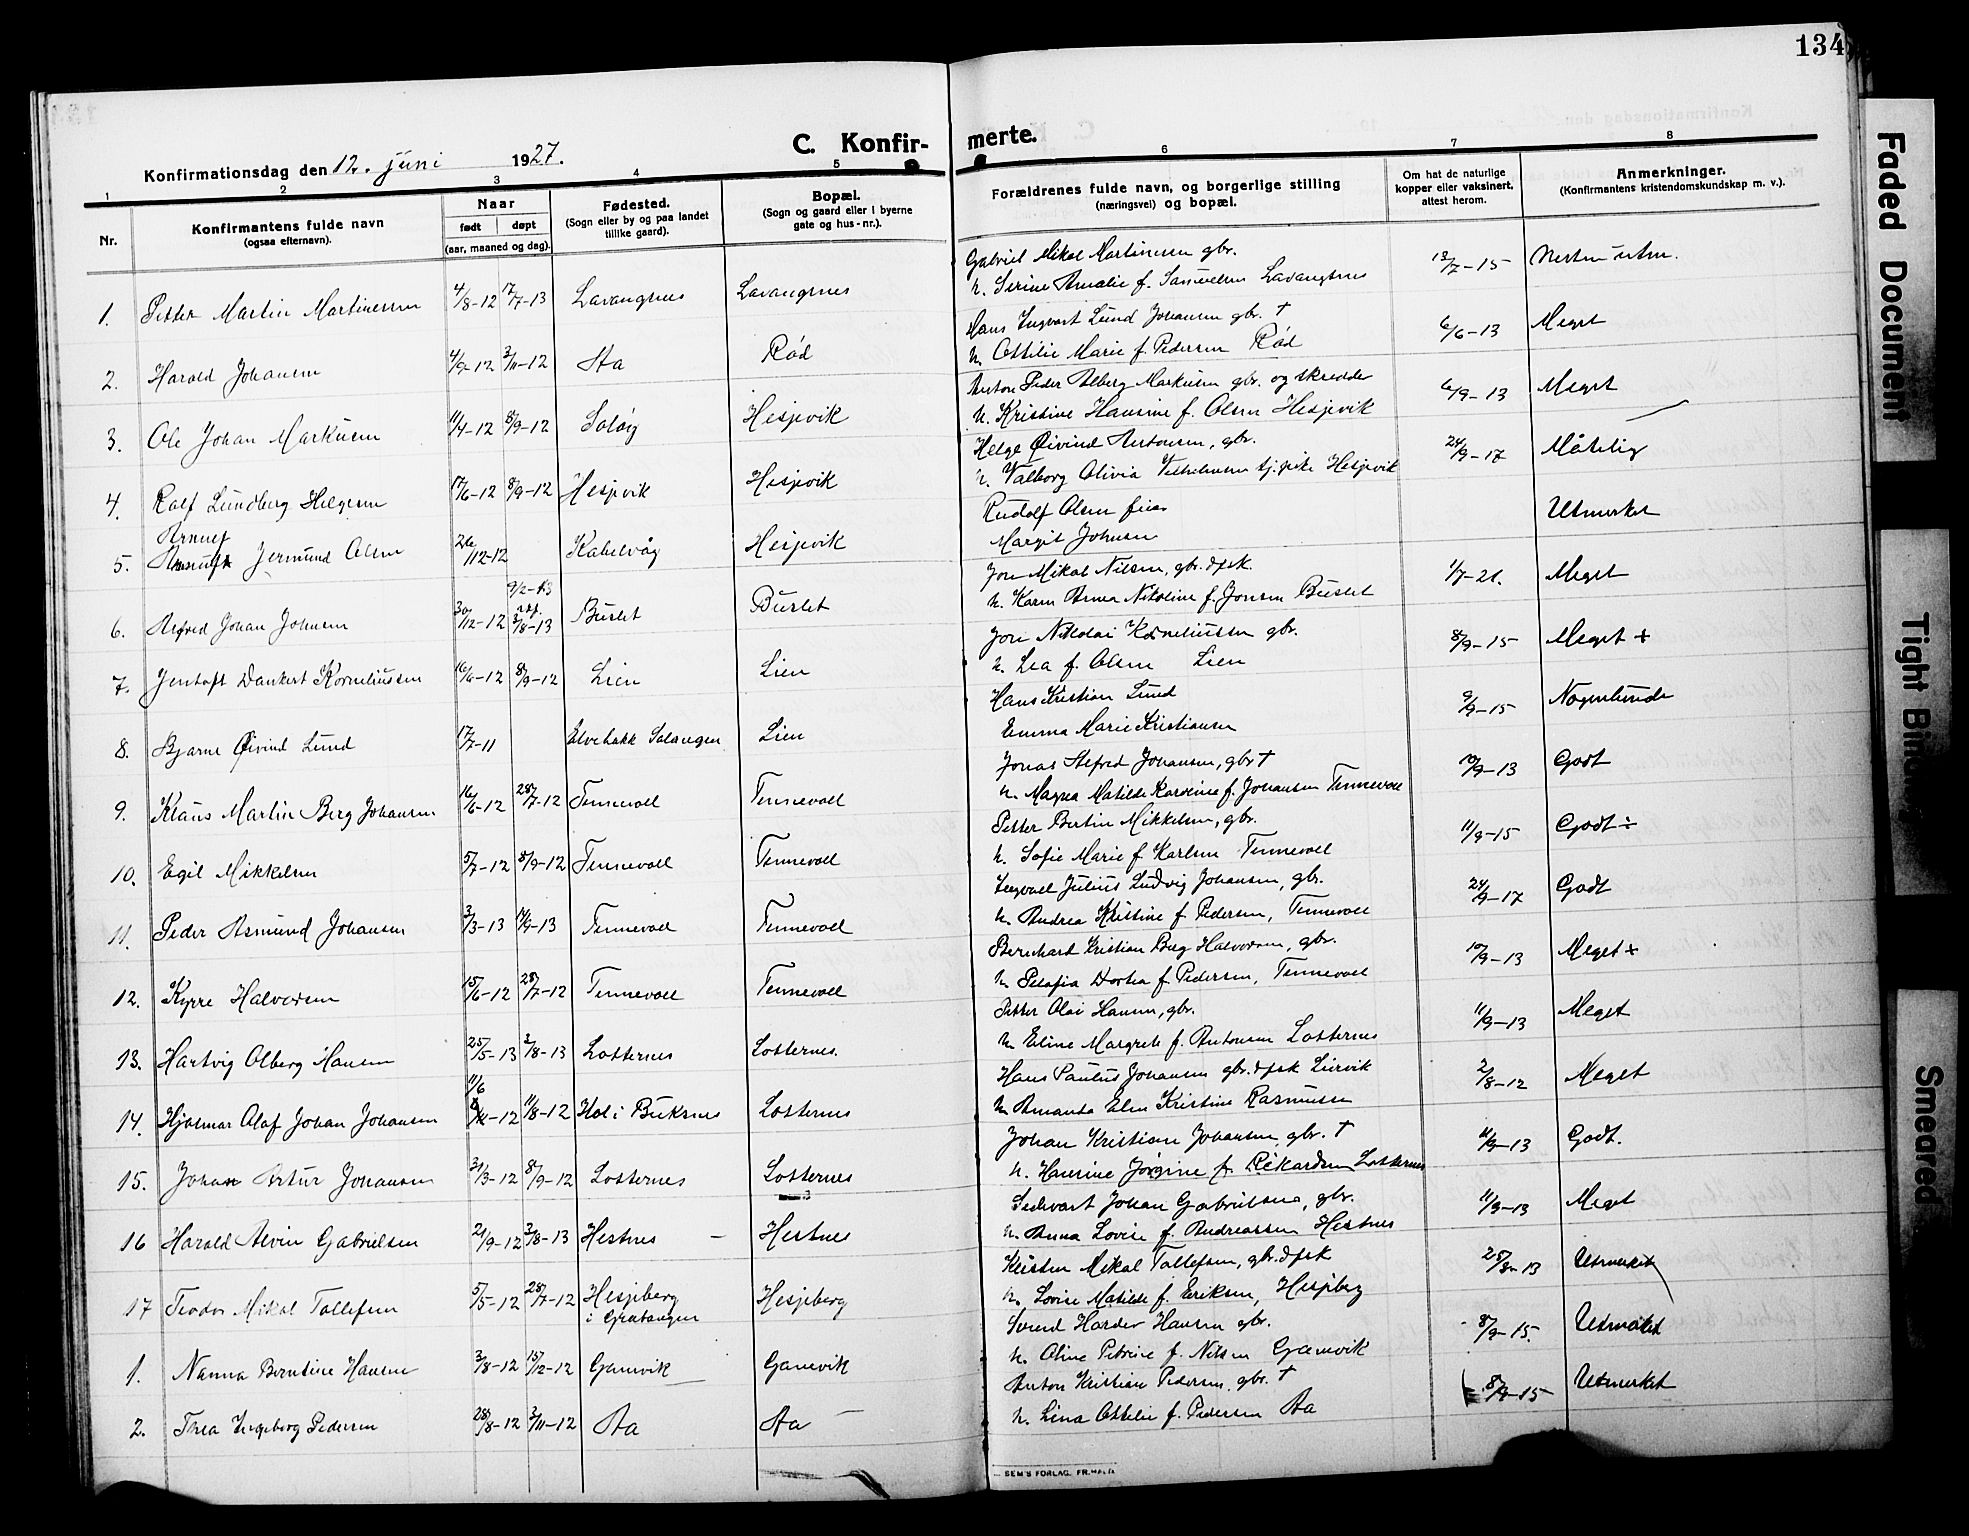 134
Konfirmationsdag den 12. juni 1927.
C. Konfirmerte.
1 2 3 4 5 6 7 8
Nr.
Konfirmantens fulde navn
(ogsaa efternavn).
Naar
født døpt
(aar, maaned og dag).
Fødested.
(Sogn eller by og paa landet
tillike gaard).
Bopæl.
(Sogn og gaard eller i byerne
gate og hus-nr.).
Forældrenes fulde navn, og borgerlige stilling
(næringsvei) og bopæl.
Om hat de naturlige
kopper eller vaksinert,
attest herom.
Anmerkninger.
(Konfirmantens kristendomskundskap m. v.).
1. Petter Martin Martinessen 4/8-12 17/7-13 Lavangsnes Lavangsnes
Gabriel Mikal Martinesen gbr.
h. Serine Amalie f. Samuelsen Lavangsnes 13/7-15 Nesten utm.
2. Harald Johansen 4/9-12 3/11-12 Aa Rød
Hans Ingvart Lund Johansen gbr. †
h. Ottilie Marie f. Pedersen Rød 6/6-13 Meget
3. Ole Johan Markusen 11/4-12 8/9-12 Soløy Hesjevik
Anton Peder Alberg Markusen gbr. og skredder
h. Kristine Hansine f. Olsen Hesjevik 6/9-13 Meget
4. Ralf Lundberg Helgesen 17/6-12 8/9-12 Hesjevik Hesjevik
Helge Øivind Antonsen, gbr.
h. Valborg Olivia Vilhelmsen tj.pike Hesjevik 24/9-17 Måtelig
Arnulf
5. Jermund Olsen 26/12-12 Kabelvåg Hesjevik
Rudolf Olsen
Margit Johnsen Utmerket
9/2-13
6. Alfred Johan Johnsen 30/12-12 3/8-13 Buslet Buslet
Jon Mikal Nilsen, gbr. &fsk.
h. Karen Anna Nikoline f. Jonsen Buslet 1/7-21. Meget
7. Jentoft Dankert Korneliussen 16/6-12 8/9-12 Lien Lien
Jon Nikolai Korneliussen gbr.
h. Lea f. Olsen Lien 8/9-15 Meget +
8. Bjarne Øivind Lund 17/7-11 Elvebakk Salangen Lien
Hans Kristian Lund
Emma Marie Kristiansen 9/9-15 Nogenlunde
9. Klaus Martin Berg Johansen 16/6-12 28/7-12 Tennevoll Tennevoll
Jonas Alfred Johansen, gbr †
h. Magna Matilde Karoline f. Johansen Tennevoll 10/9-13 Godt
10. Egil Mikkelsen 5/7-12 8/9-12 Tennevoll Tennevoll
Petter Bertin Mikkelsen, gbr.
h. Sofie Marie f Karlsen Tennevoll 11/9-15 Godt ÷
11. Peder Asmund Johansen 3/3-13 14/9-13 Tennevoll Tennevoll
Ingvall Julius Ludvig Johansen, gbr.
h. Andrea Kristine f Pedersen, Tennevoll 24/9-17 Godt
12. Kyrre Halvorsen 15/6-12 28/7-12 Tennevoll Tennevoll
Bernhard Kristian Berg Halvorsen, gbr.
h. Dortea f Pedersen, Tennevoll 10/9-13 Meget +
13. Hartvig Olberg Hansen 25/5-13 3/8-13 Lotternes Lotternes.
Petter Olai Hansen, gbr.
h. Eline Margrete f. Antonsen Lotternes 11/9-13 Meget
11/6
14. Hjalmar Olaf Johan Johansen -12 11/8-12 Hol i Buksnes Lotternes
Hans Paulus Johansen gbr. &fsk
h. Amanda Elen Kristine Rasmussen 2/8-12 Meget
15. Johan Artur Johansen 31/3-12 8/9-12 Lotternes Lotternes
Johan Kristian Johansen, gbr. †
h. Hansine Jørgine f. Rikardsen Lotternes 11/9-13 Godt.
16 Harald Alvin Gabrielsen 21/9-12 3/8-13 Hestnes Hestnes
Johan Gabrielsen, gbr.
h. Anna Lovise f. Andreassen Hestnes 11/9-13 Meget
17 Teodor Mikal Tollefsen 5/5-12 28/7-12 Hesjeberg
i Gratangen Hesjeberg
Kristen Mikal Tollefsen, gbr. &fsk
h. Lovise Matilde f. Eriksen, Hesjeberg 25/8-13 Utmerket
1. Nanna Berntine Hansen 3/8-12 15/12-12 Gamvik Gamvik
Svend Harder Hansen gbr.
h. Oline Petrine f. Nilsen Gamvik 8/9-15. Utmerket
2. Thea Ingeborg Pedersen 28/8-12 3/11-12 Aa Aa
Anton Kristian Pedersen, gbr. †
h. Lina Ottilie f. Pedersen Aa 8/9-15 Utmerket
SEM'S FORLAG, FR.HALD
Faded Document
Tight Binding
Smeared